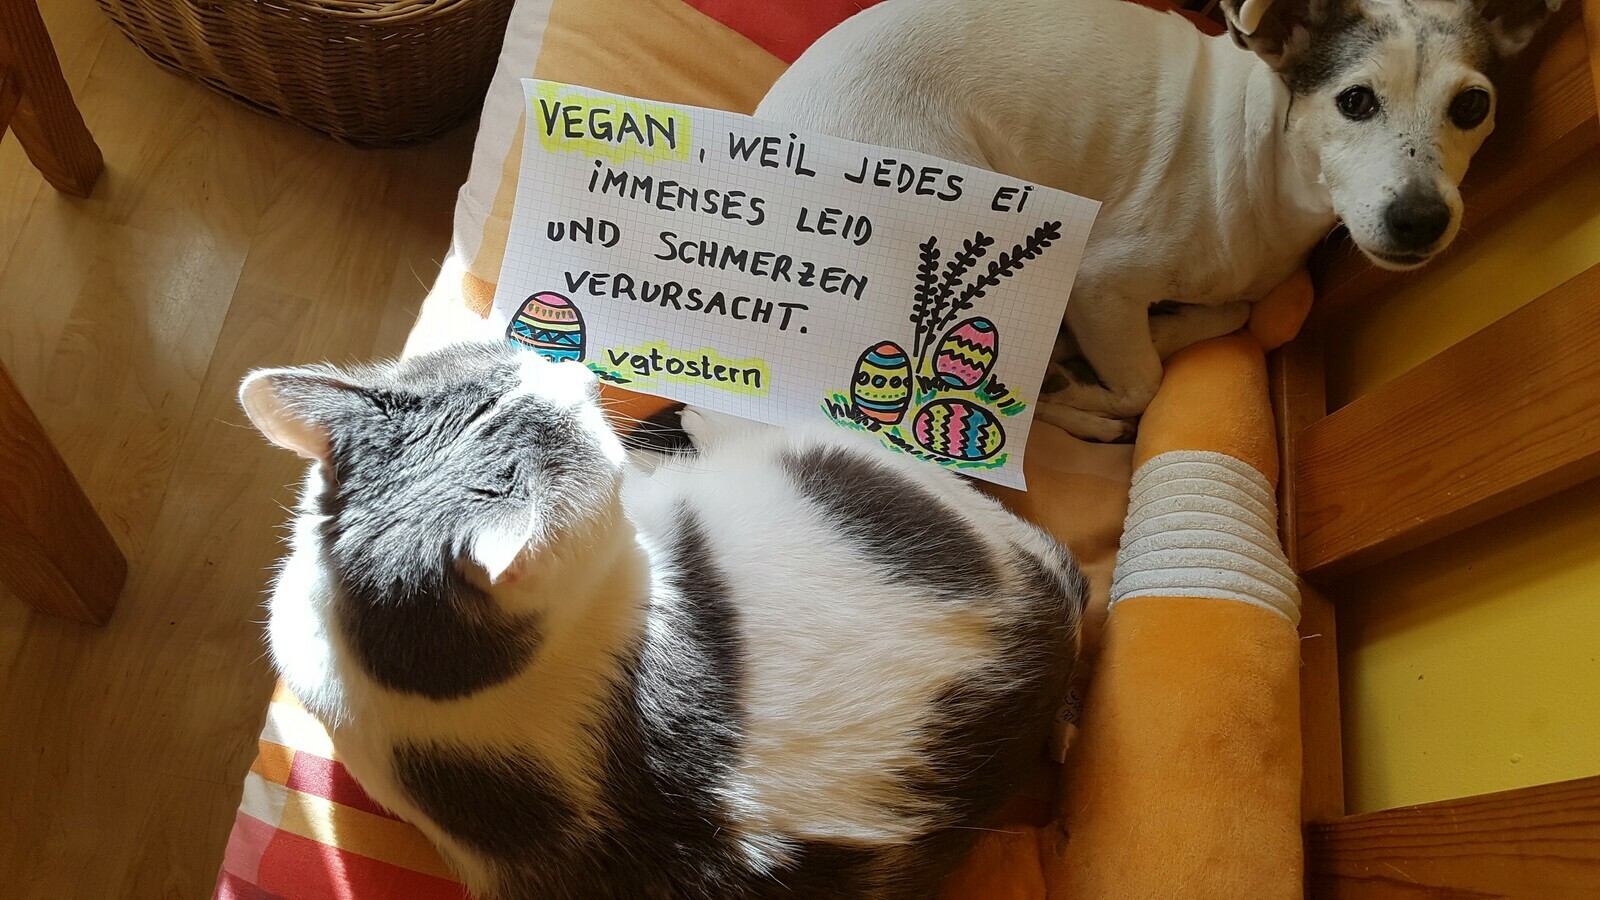 VEGAN, WEIL JEDES EI
IMMENSES LEID
UND SCHMERZEN
VERURSACHT.
vgtostern